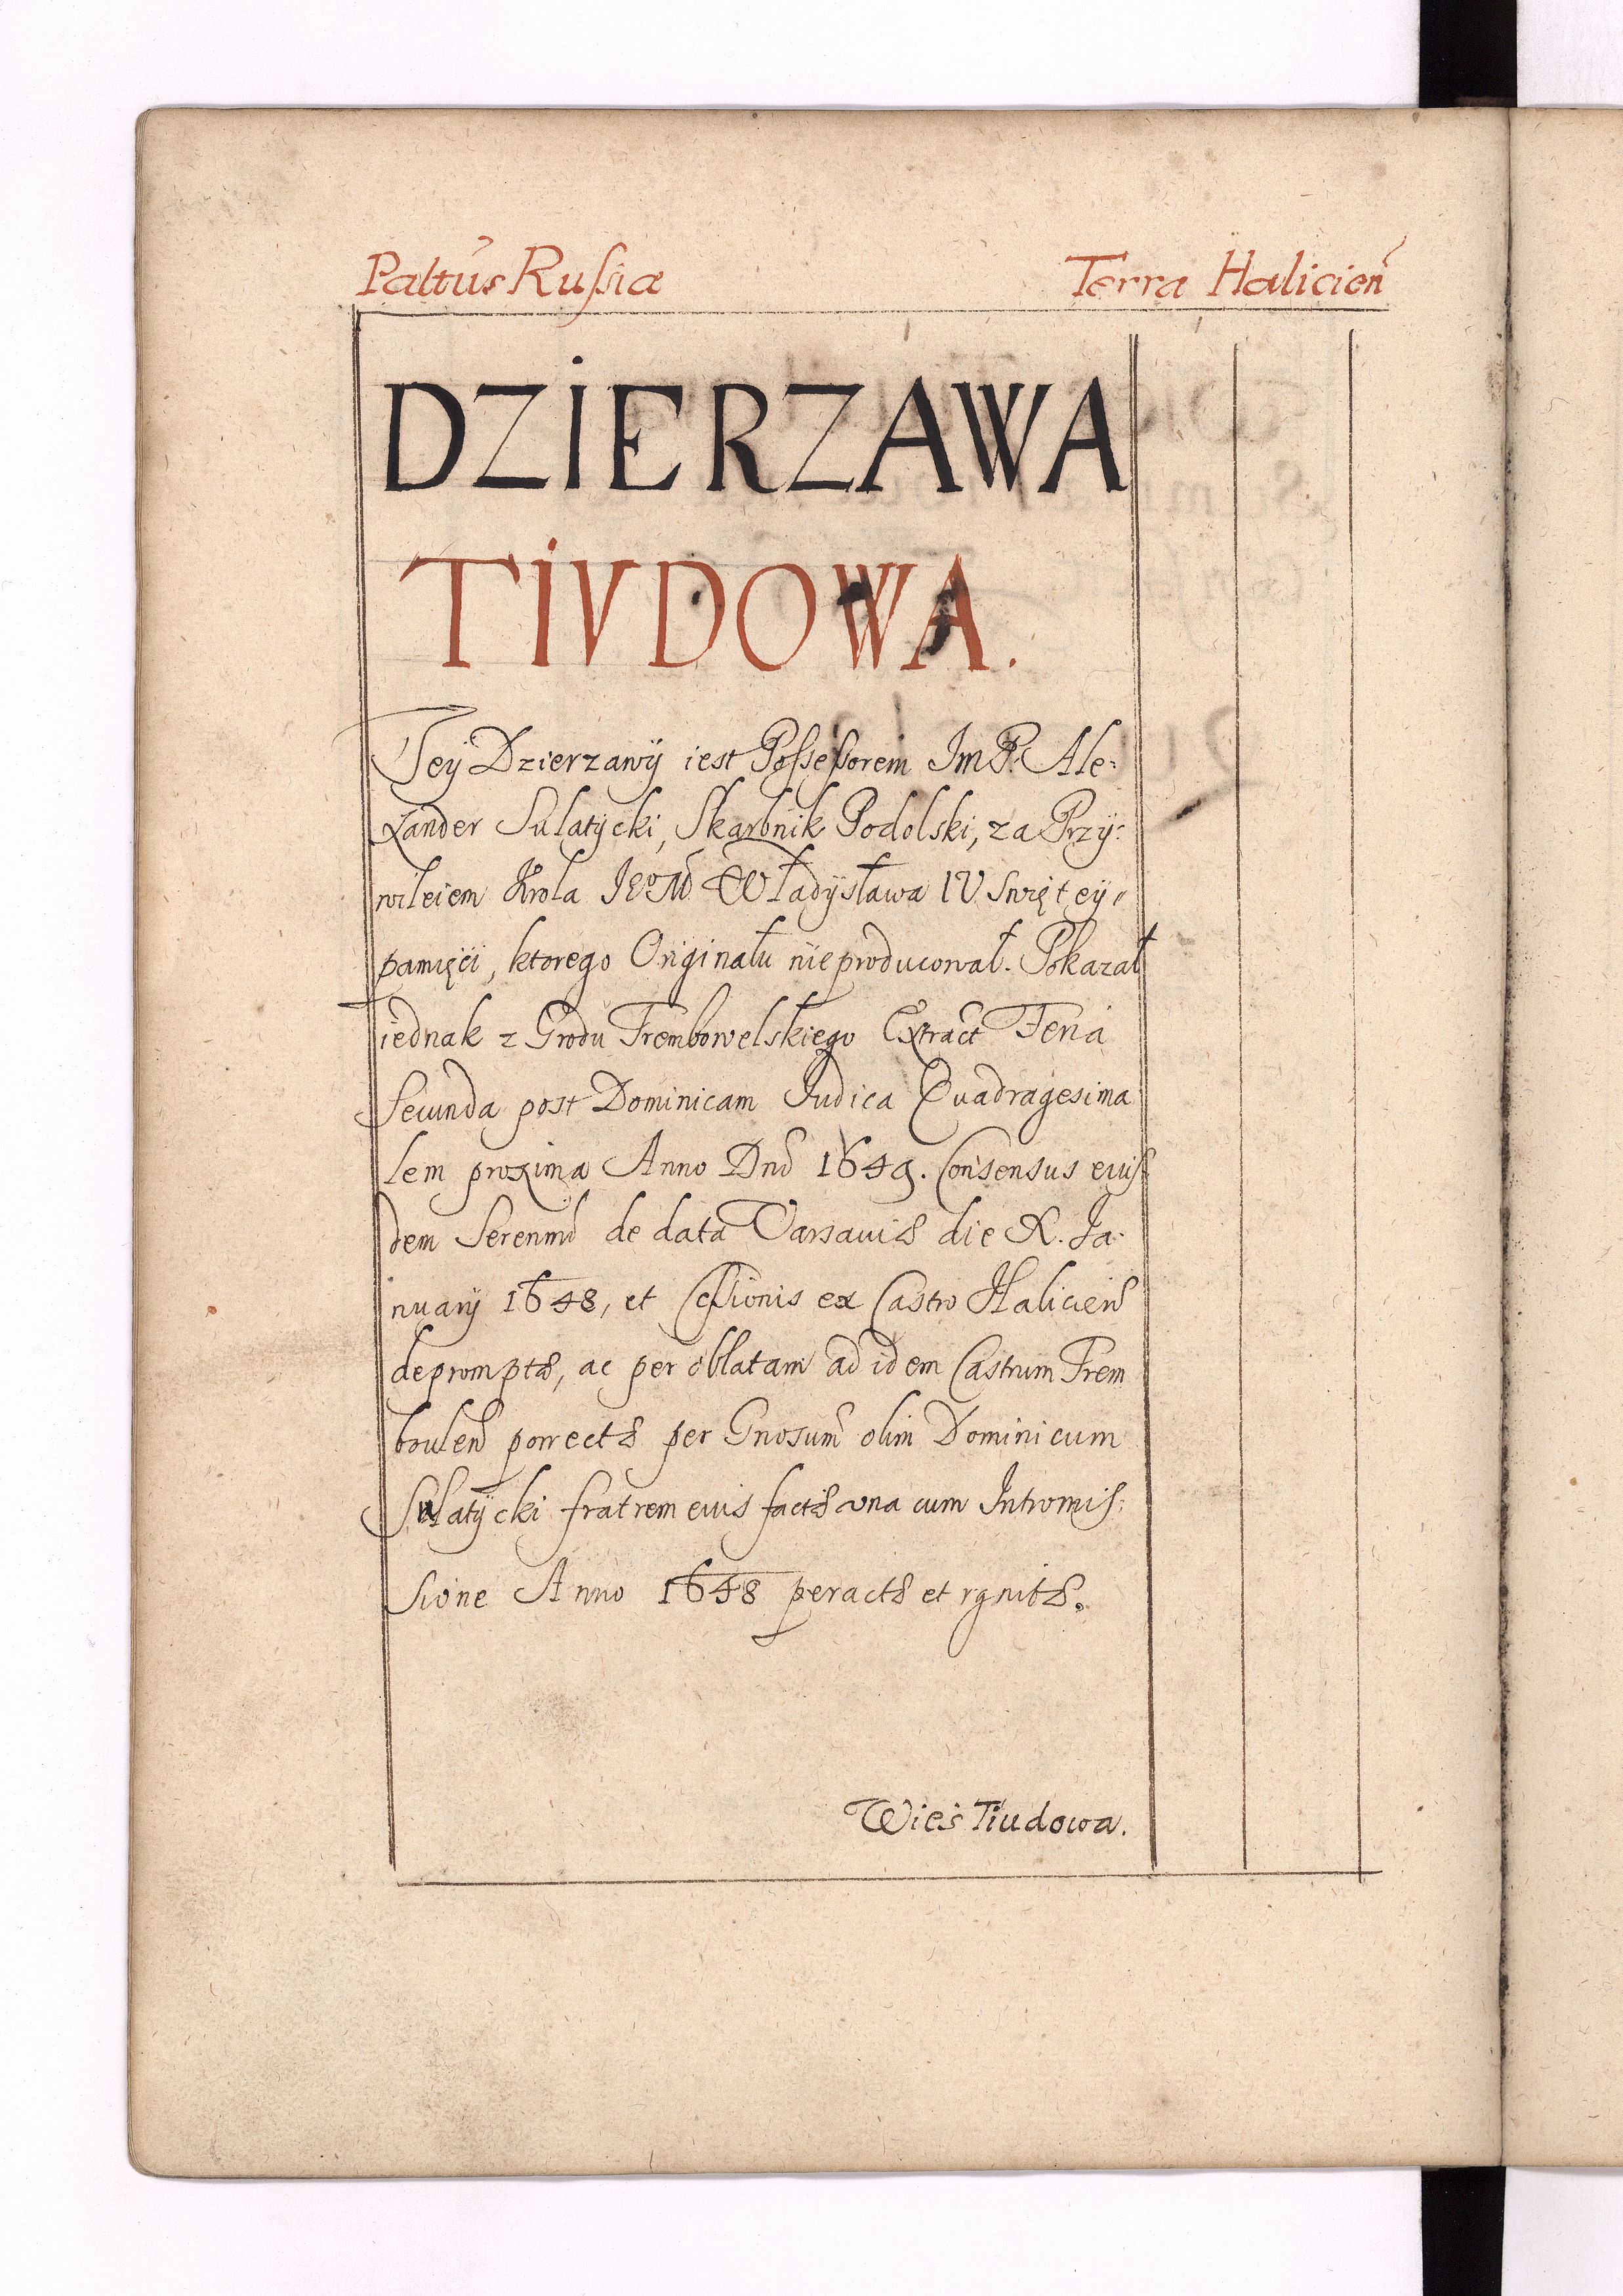 Paltus Russiæ Terra Halicien
DZIERZAWA
TIVDOWA.
Tey Dzierzawy iest Possessorem Im P. Ale:
xander Sulatycki, Skarbnik Podolski, za Przy:
wileiem Krola Władysława IV Swiętey
pamięci, ktorego Originału nie producował. Pokazał
iednak z Grodu Trembowelskiego Extract Feria
Secunda post Dominicam Iudica Quadragesima
lem proxima Anno Dnı 1649. Consensus eius
dem Serenmi de data Varsaviæ die X. Ja:
nuarij 1648, et Cessionis ex Castro Halicien
depromptæ, ac per oblatam ad idem Castrum Trem
boulen porrectæ per Gnosum olim Dominicum
Sulatycki fratrem eius factæ una cum Intromis:
sione Anno 1648 peractæ et rgnitæ.
Wieś Tiudowa.